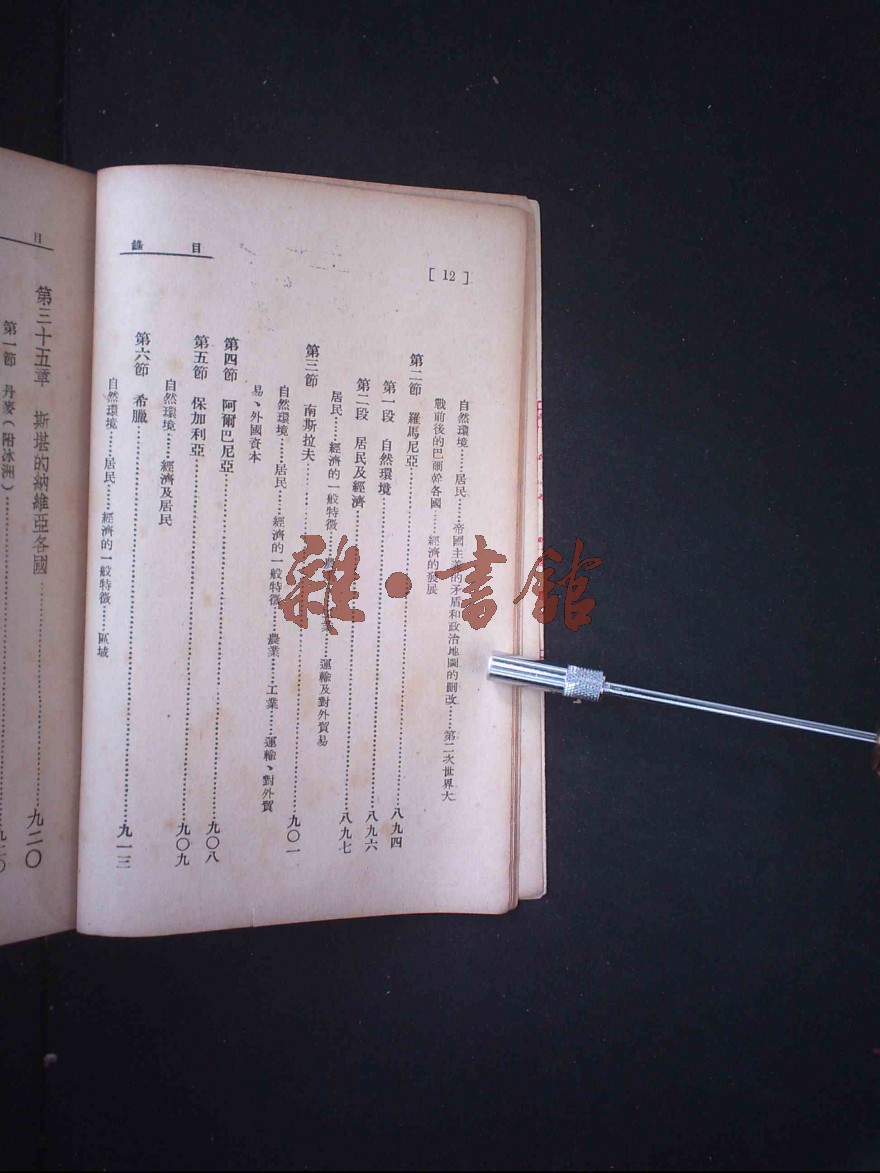 [ 12 ]
目錄
自然環境……居民……帝國主義的矛盾和政治地圖的劃改……第二次世界大
戰前後的巴爾幹各國……經濟的發展
第二節 羅馬尼亞……八九四
第一段 自然環境……八九六
第二段 居民及經濟……八九七
居民……經濟的一般特徵……農業……運輸及對外貿易
第三節 南斯拉夫……九〇一
自然環境……居民……經濟的一般特徵……農業……工業……運輸、對外貿
易、外國資本
第四節 阿爾巴尼亞……九〇八
第五節 保加利亞……九〇九
自然環境……經濟及居民
第六節 希臘……九一三
自然環境……居民……經濟的一般特徵……區域
目
第三十五章 斯堪的納維亞各國……九二〇
第一節 丹麥(附冰洲)……九二〇
雜·書館